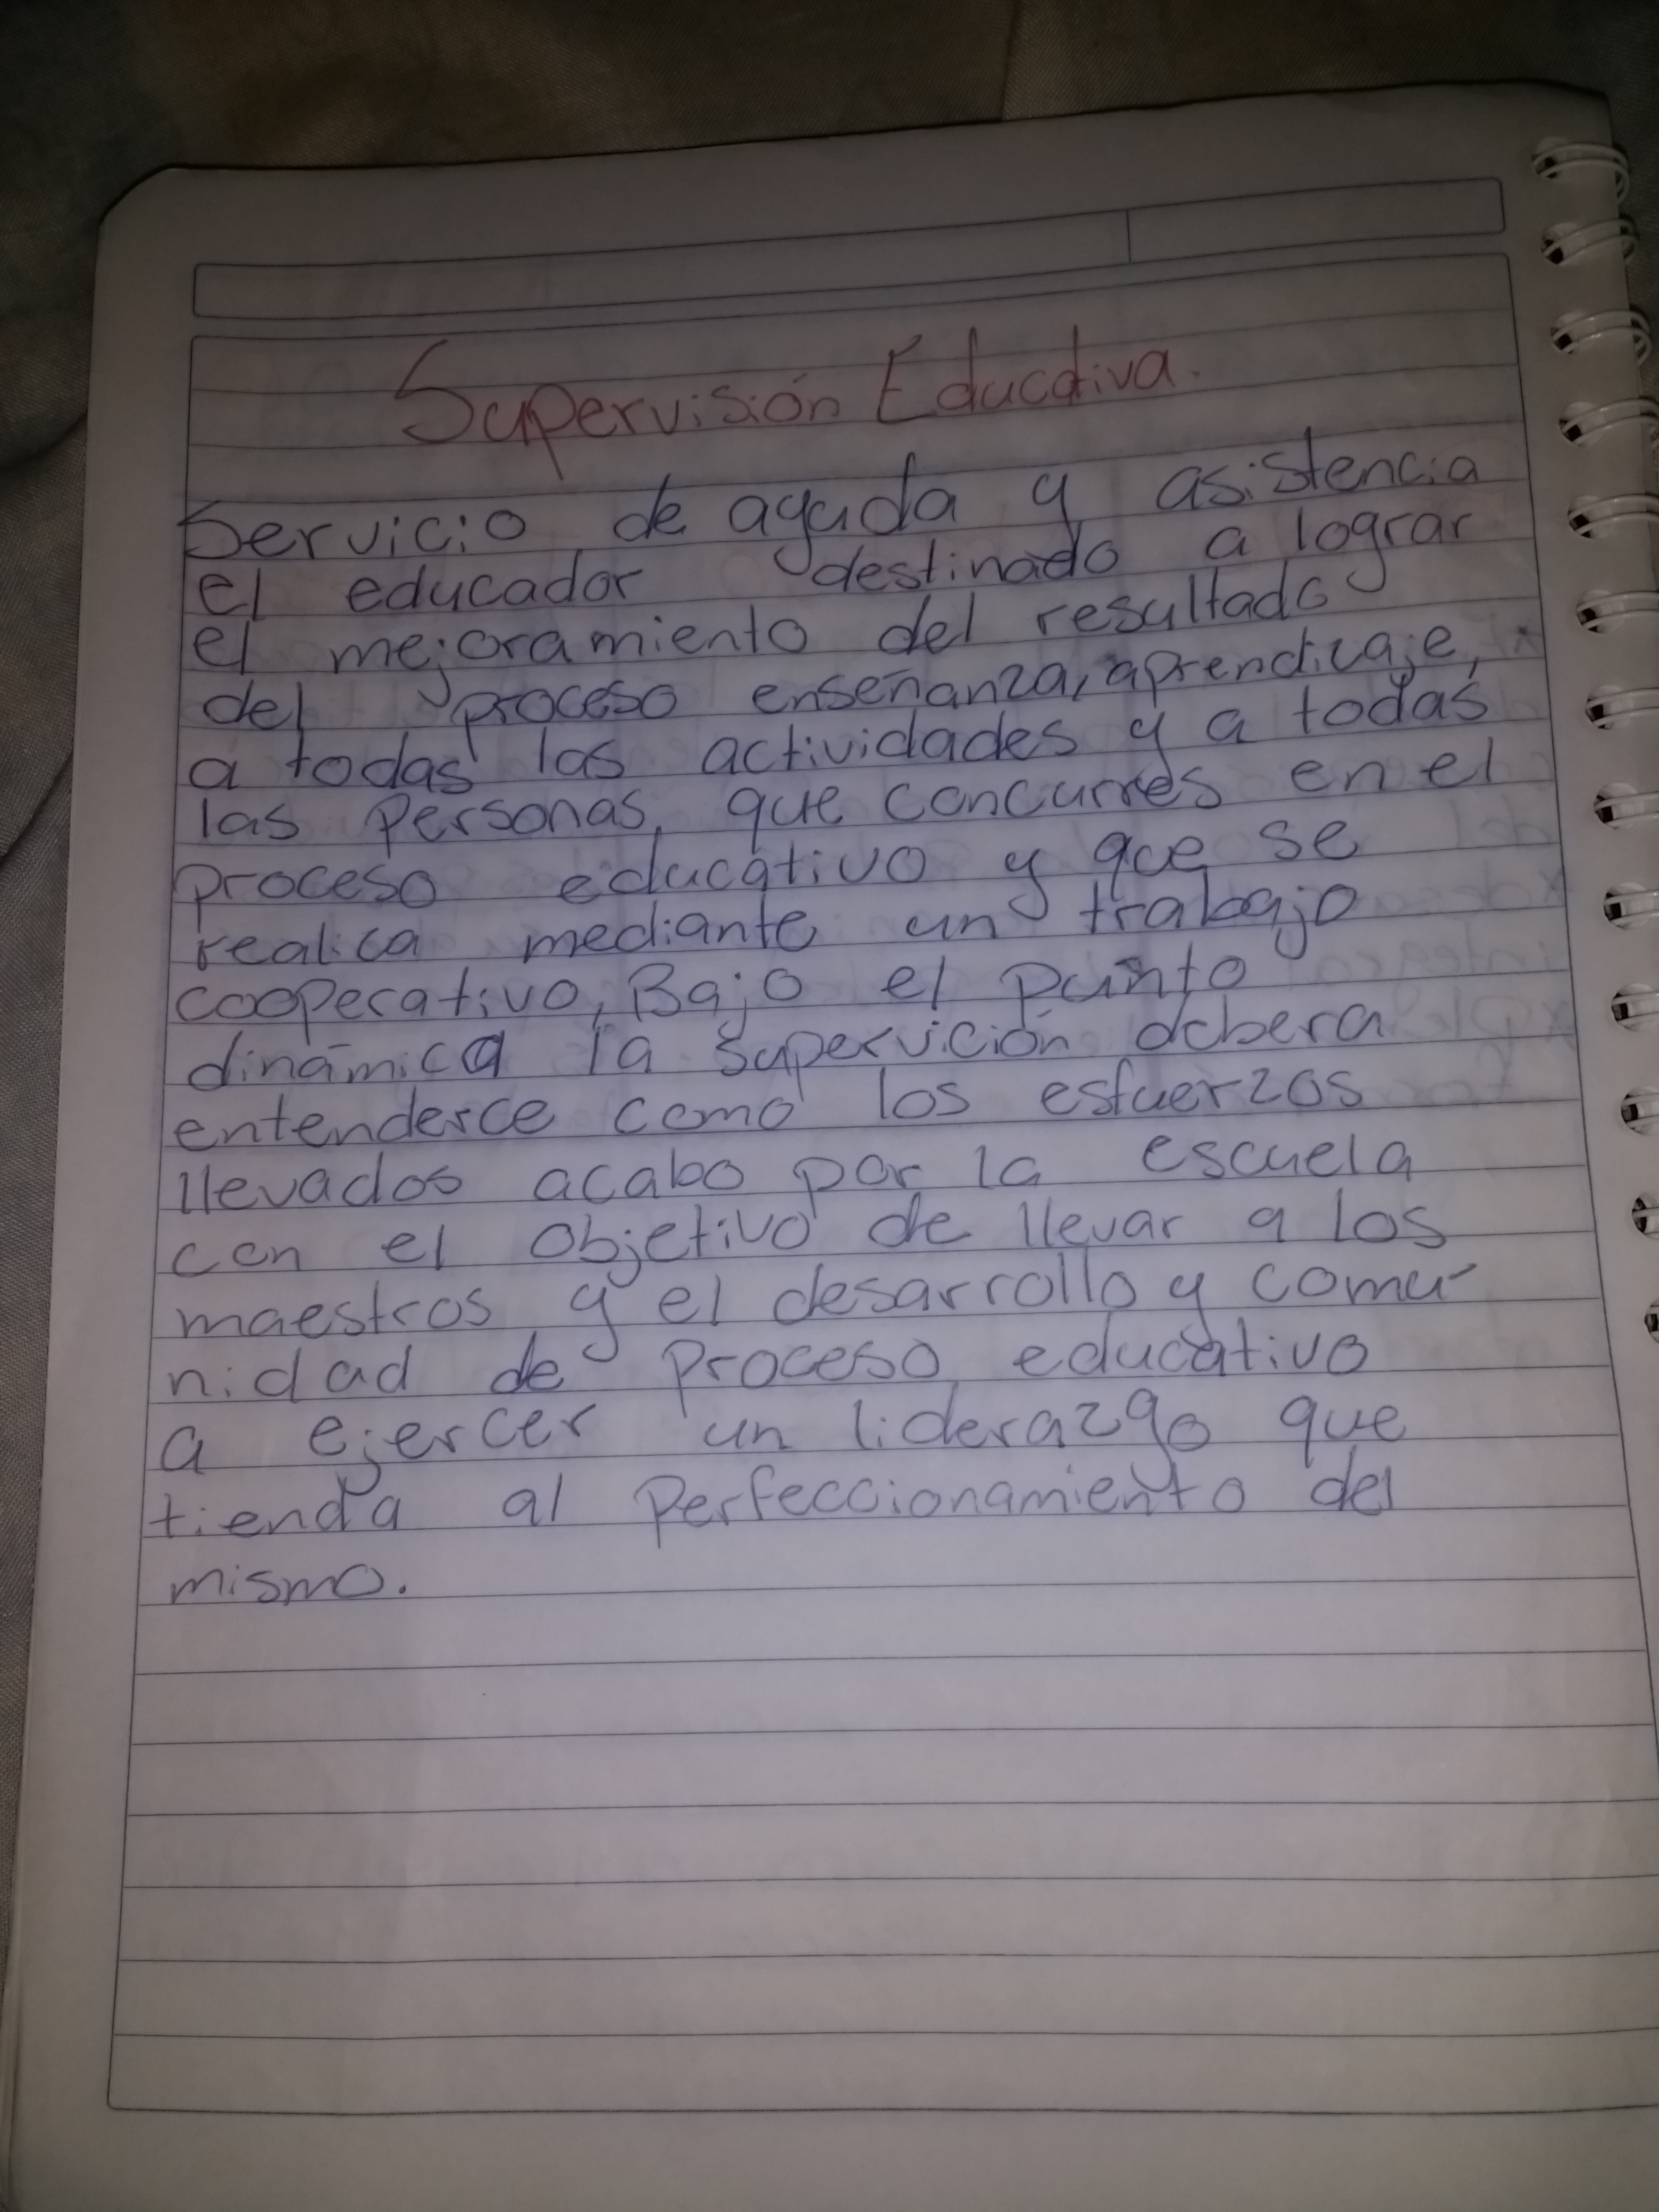 Supervisión Educativa.
Servicio de ayuda y asistencia
el educador destinado a lograr
el mejoramiento del resultado
del proceso enseñanza, aprendicaje,
a todas las actividades y a todas
las personas, que concurres en el
proceso educativo y que se
realica mediante un trabajo
cooperativo, Bajo el punto
dinámica la supervición debera
enténderce como los esfuerzos
llevados acabo por la escuela
con el objetivo de llevar a los
maestros y el desarrollo y comu-
nidad de proceso educativo
a ejercer un liderazgo que
tienda al perfeccionamiento del
mismo.